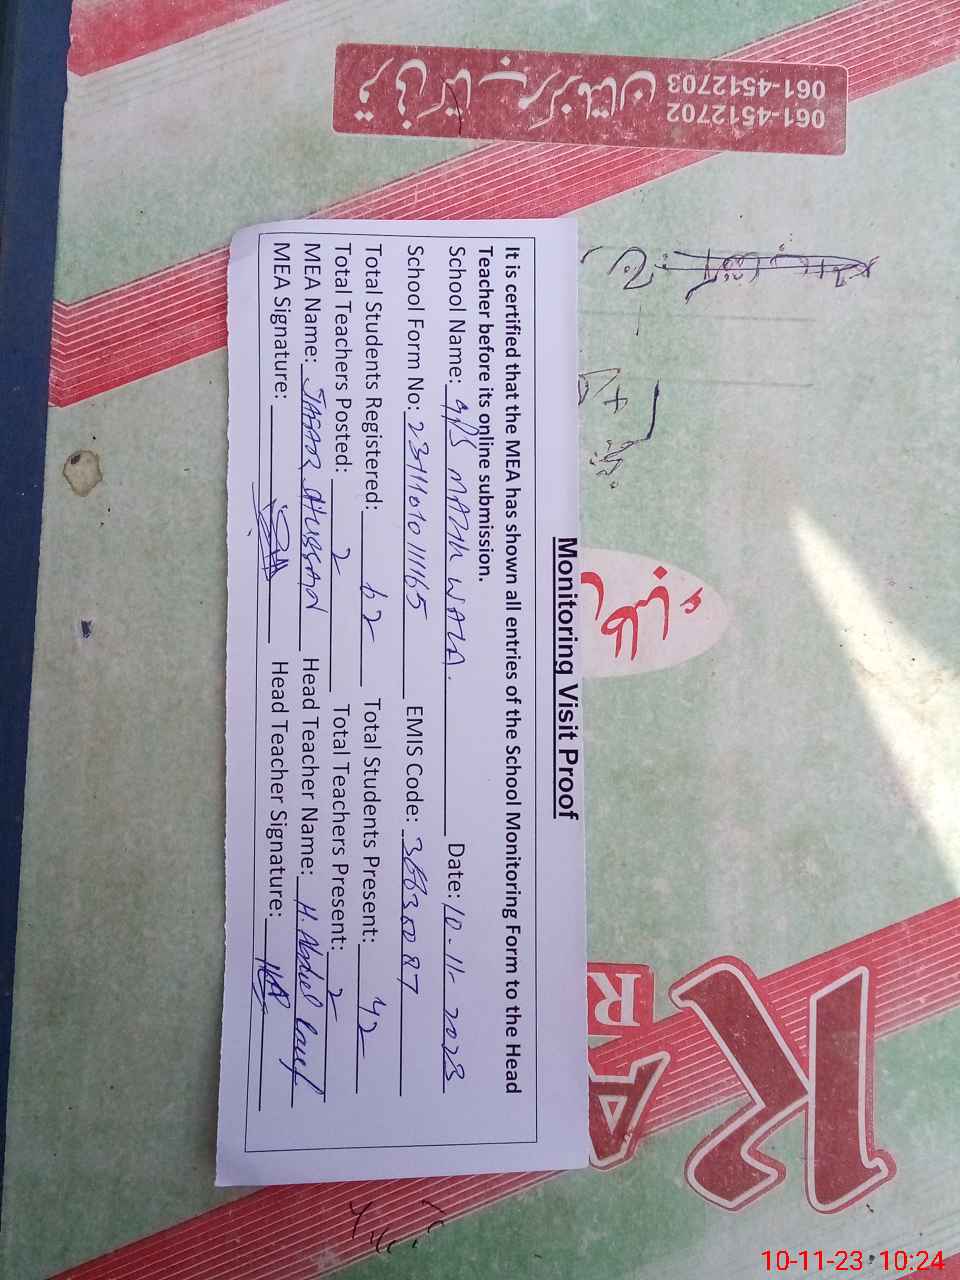 Monitoring Visit Proof
It is certified that the MEA has shown all entries of the School Monitoring Form to the Head
Teacher before its online submission.
School Name: GPS MAZHI WALA. Date: 10-11-2023
School Form No: 23111010111165 EMIS Code:
Total Students Registered: 62 Total Students Present: 42
Total Teachers Posted: 2 Total Teachers Present: 2
MEA Name: Head Teacher Name: H. Abdul
MEA Signature: Head Teacher Signature:
061-4512702
061-4512703
قریشی کتاب مرکز ملتان
R
10-11-23 10:24